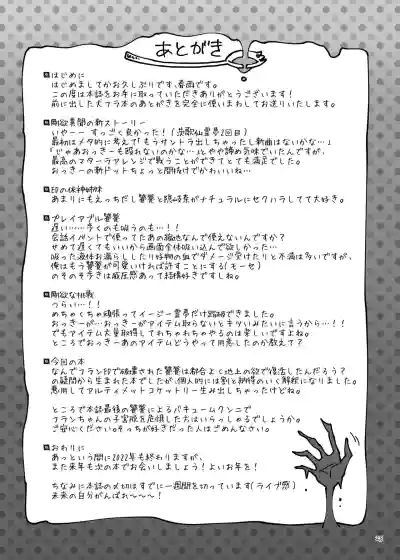 あとがき
はじめに
はじめましてかお久しぶりです、春雨です。
この度は本誌をお手に取っていただきありがとうございます!
前に出した犬フラ本のあとがきを完全に使いまわしてお送りいたします。
剛欲異聞の新ストーリー
いやーー すっごく良かった!
最初はメタ的に考えて「もうサントラ出しちゃったし新曲はないかな…」
「じゃあおっきーも踊れないのかな…」とやや諦め気味でいたんですが、
最高のマターラアレンジで戦うことができてとても満足でした。
おっきーの新ドットちょっと間抜けでかわいいね…
あまりにもえっちだし饕餮と隠岐奈がナチュラルにセクハラしてて大好き。
プレイアブル饕餮
遅い…歩くのも吸うのも…!!
会話イベントで使ってたあの瞬間なんで使えないんですか?
せめて遅くてもいいから画面全体吸い込んで欲しかった…
吸った液体お漏らししたり好物の血でダメージ受けたりと不満は多いですが、
俺はもう饕餮が可愛いければ許すことにする(モーセ)
そのそ歩きは威圧感あって結構好きですしね。
剛欲な挑戦
つらい…!!
めちゃくちゃ頑張ってイージー霊夢だけ踏破できました。
おっきーが…おっきーがアイテム取らないとキツいみたいに言うから…!!
でもアイテム大量取得してわちゃわちゃやるのは楽しいですよね。
ところでおっきーあのアイテムどうやって用意したのか教えて?
今回の本
なんでフラン印で破壊された饕餮は都合よく地上の欲で復活したんだろう?
の疑問から生まれた本でしたが、個人的には割と納得のいく解釈になりました。
悪用してアルティメットコケットリー生み出しちゃったけどね。
ところで本誌最後の饕餮によるバキュームクンニで
フランちゃんの子宮脱を危惧した方はいらっしゃるでしょうか。
ご安心ください。そっちが好きだった人はごめんなさい。
おわりに
あっという間に2022年も終わりますが、
また来年も次の本でお会いしましょう!よいお年を!
ちなみに本誌の〆切はすでに一週間を切っています(ライブ感)
未来の自分がんばぉ~~~~!